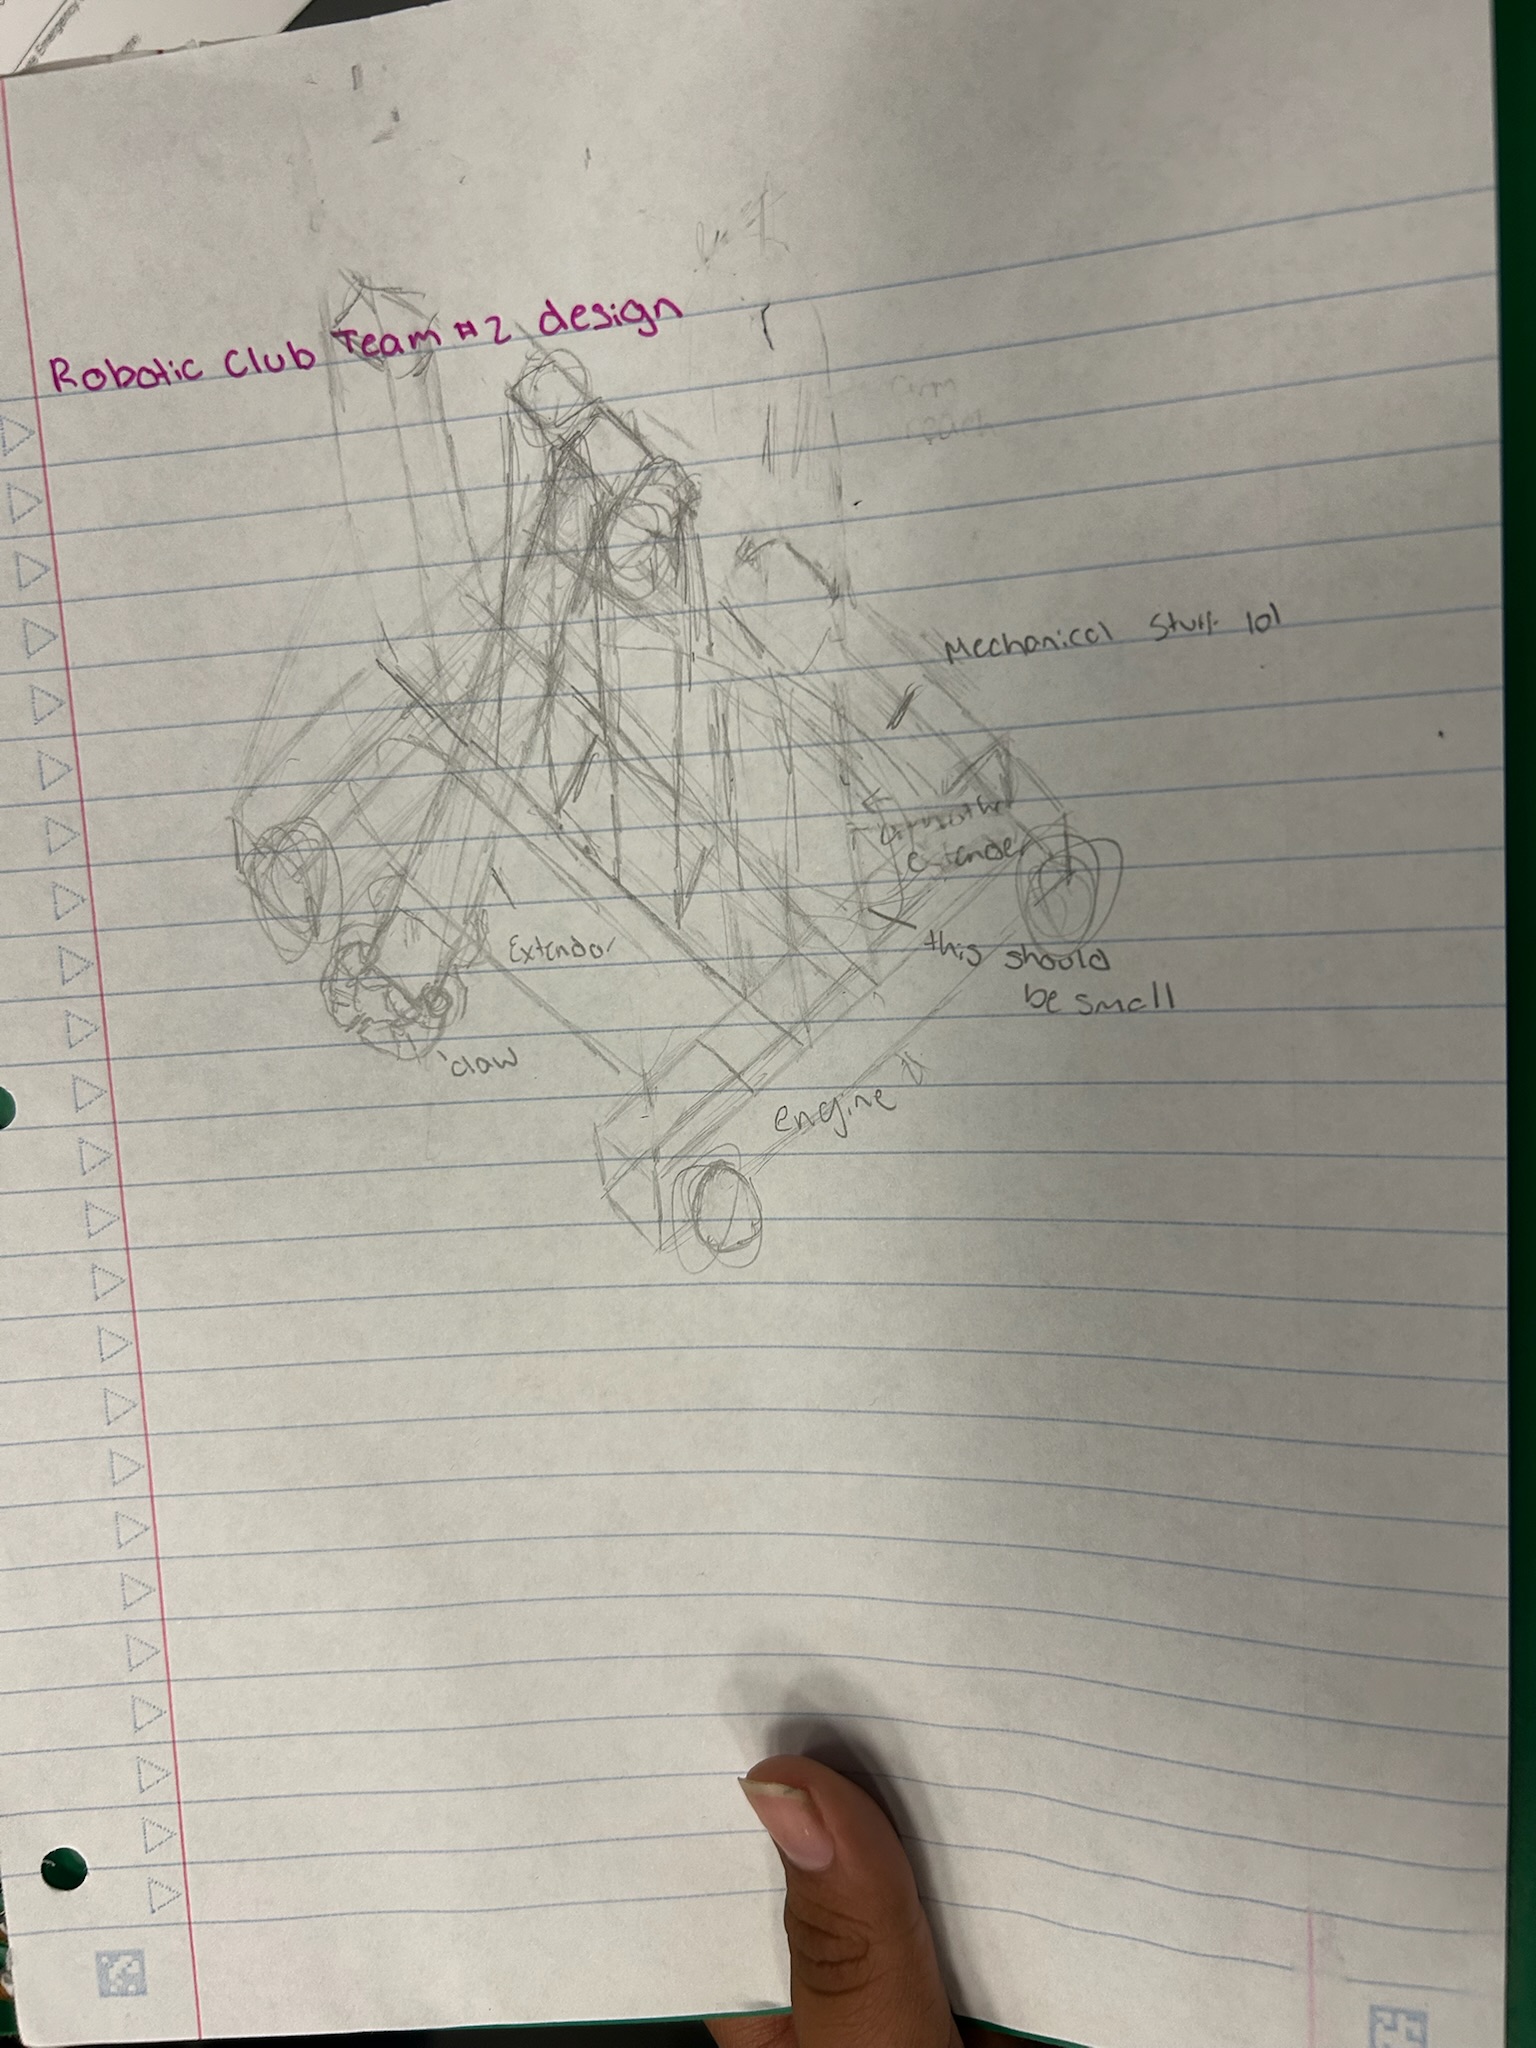 Robotic Club Team #2 design
arm
reach
Mechanical Stuff lol
extender
Extendor
this should
be small
claw
engine